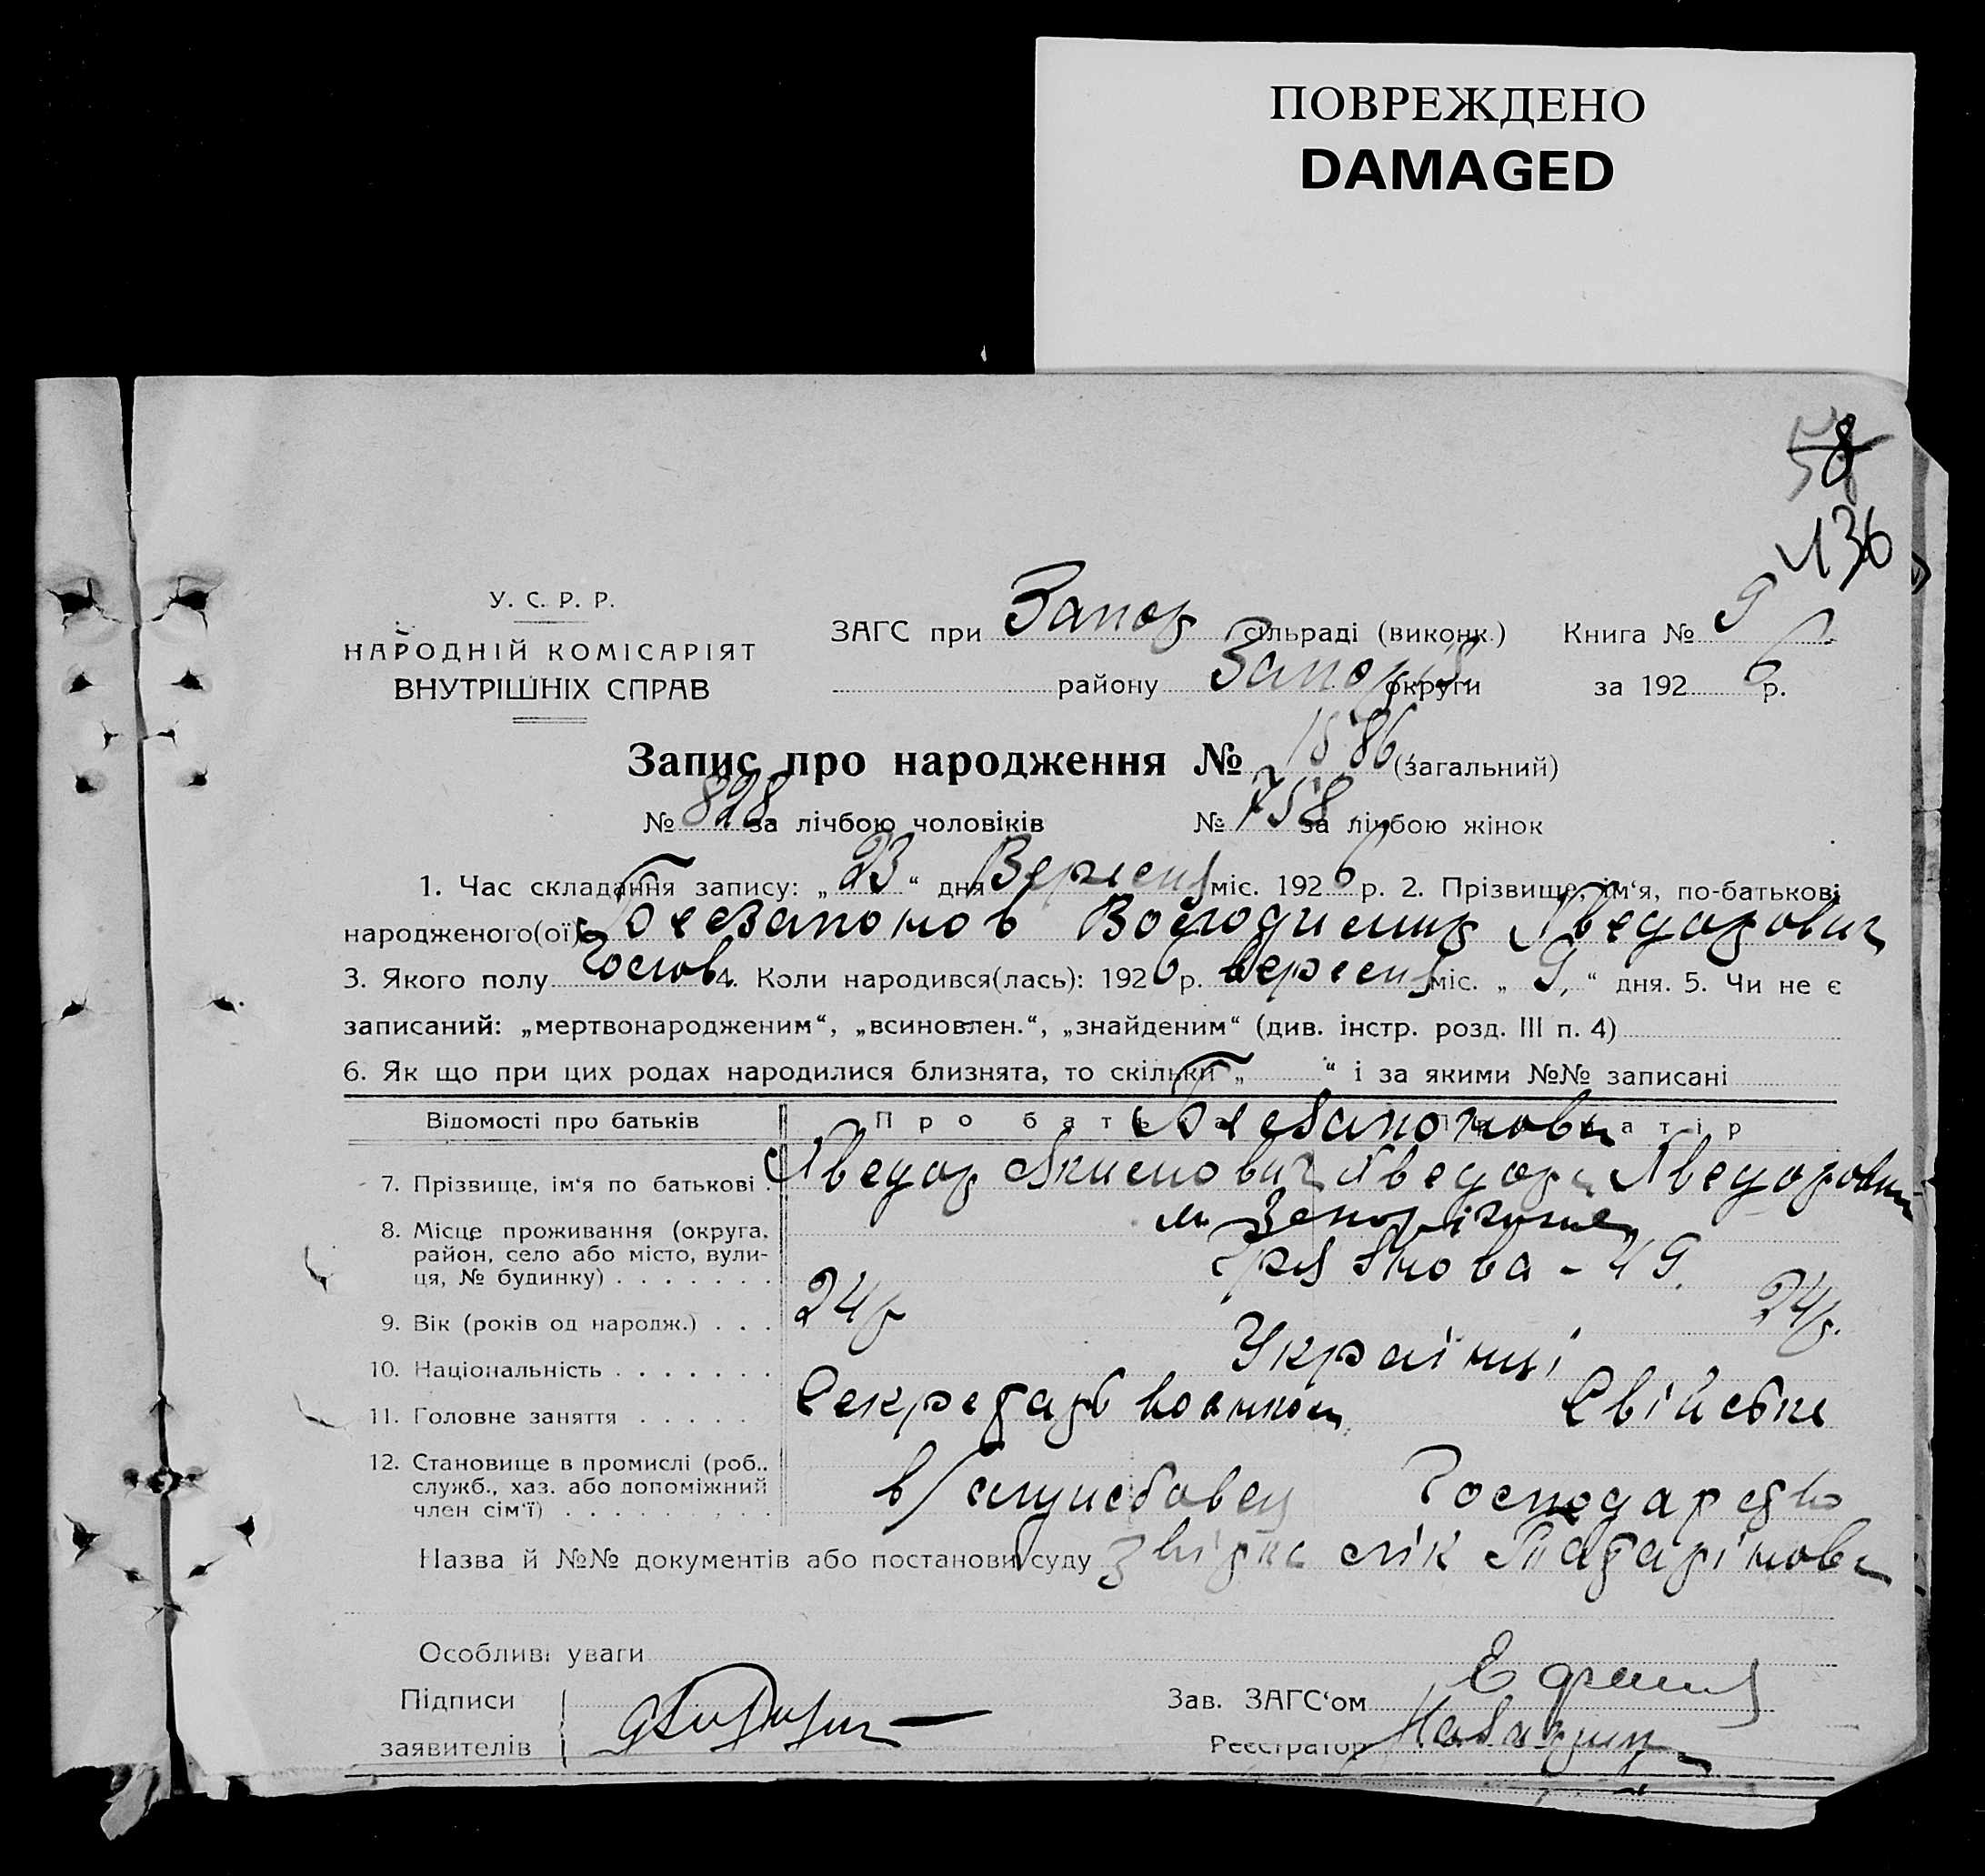 ПОВРЕЖДЕНО
DAMAGED
58
136
У. С. Р. Р.
НАРОДНІЙ КОМІСАРІЯТ
ВНУТРІШНІХ СПРАВ
ЗАГС при Запор сільраді (виконк.) Книга № 9
району Запор округи за 1926 р.
Запис про народження № 1586 (загальний)
№ 828 за лічбою чоловіків № 758 за лічбою жінок
1. Час складання запису: „23“ дня Вересня міс. 1926 р. 2. Прізвище, ім‘я, по-батькові
народженого(ої) Володимир Хведорович
3. Якого полу Чолов 4. Коли народився(лась): 1926 р. вересня міс. „9“ дня. 5. Чи не є
записаний: „мертвонародженим“, „всиновлен.“, „знайденим“ (див. інстр. розд. III п. 4)
6. Як що при цих родах народилися близнята, то скільки „ “ і за якими №№ записані
Відомості про батьків
7. Прізвище, ім‘я по батькові Хведор Якимович Хведора Хведоровна
8. Місце проживання (округа, район, село або місто, вули-
ця, № будинку) м. Запоріжжє
9. Вік (років од народж.) 24р 24р.
10. Національність Українці
11. Головне заняття Секретарь Свійське
12. Становище в промислі (роб.. служб., хаз. або допоміжний
член сім‘ї) службовец Господарство
Назва й №№ документів або постанови суду
Особливі уваги
Підписи
заявителів
Зав. ЗАГС‘ом
Реєстратор